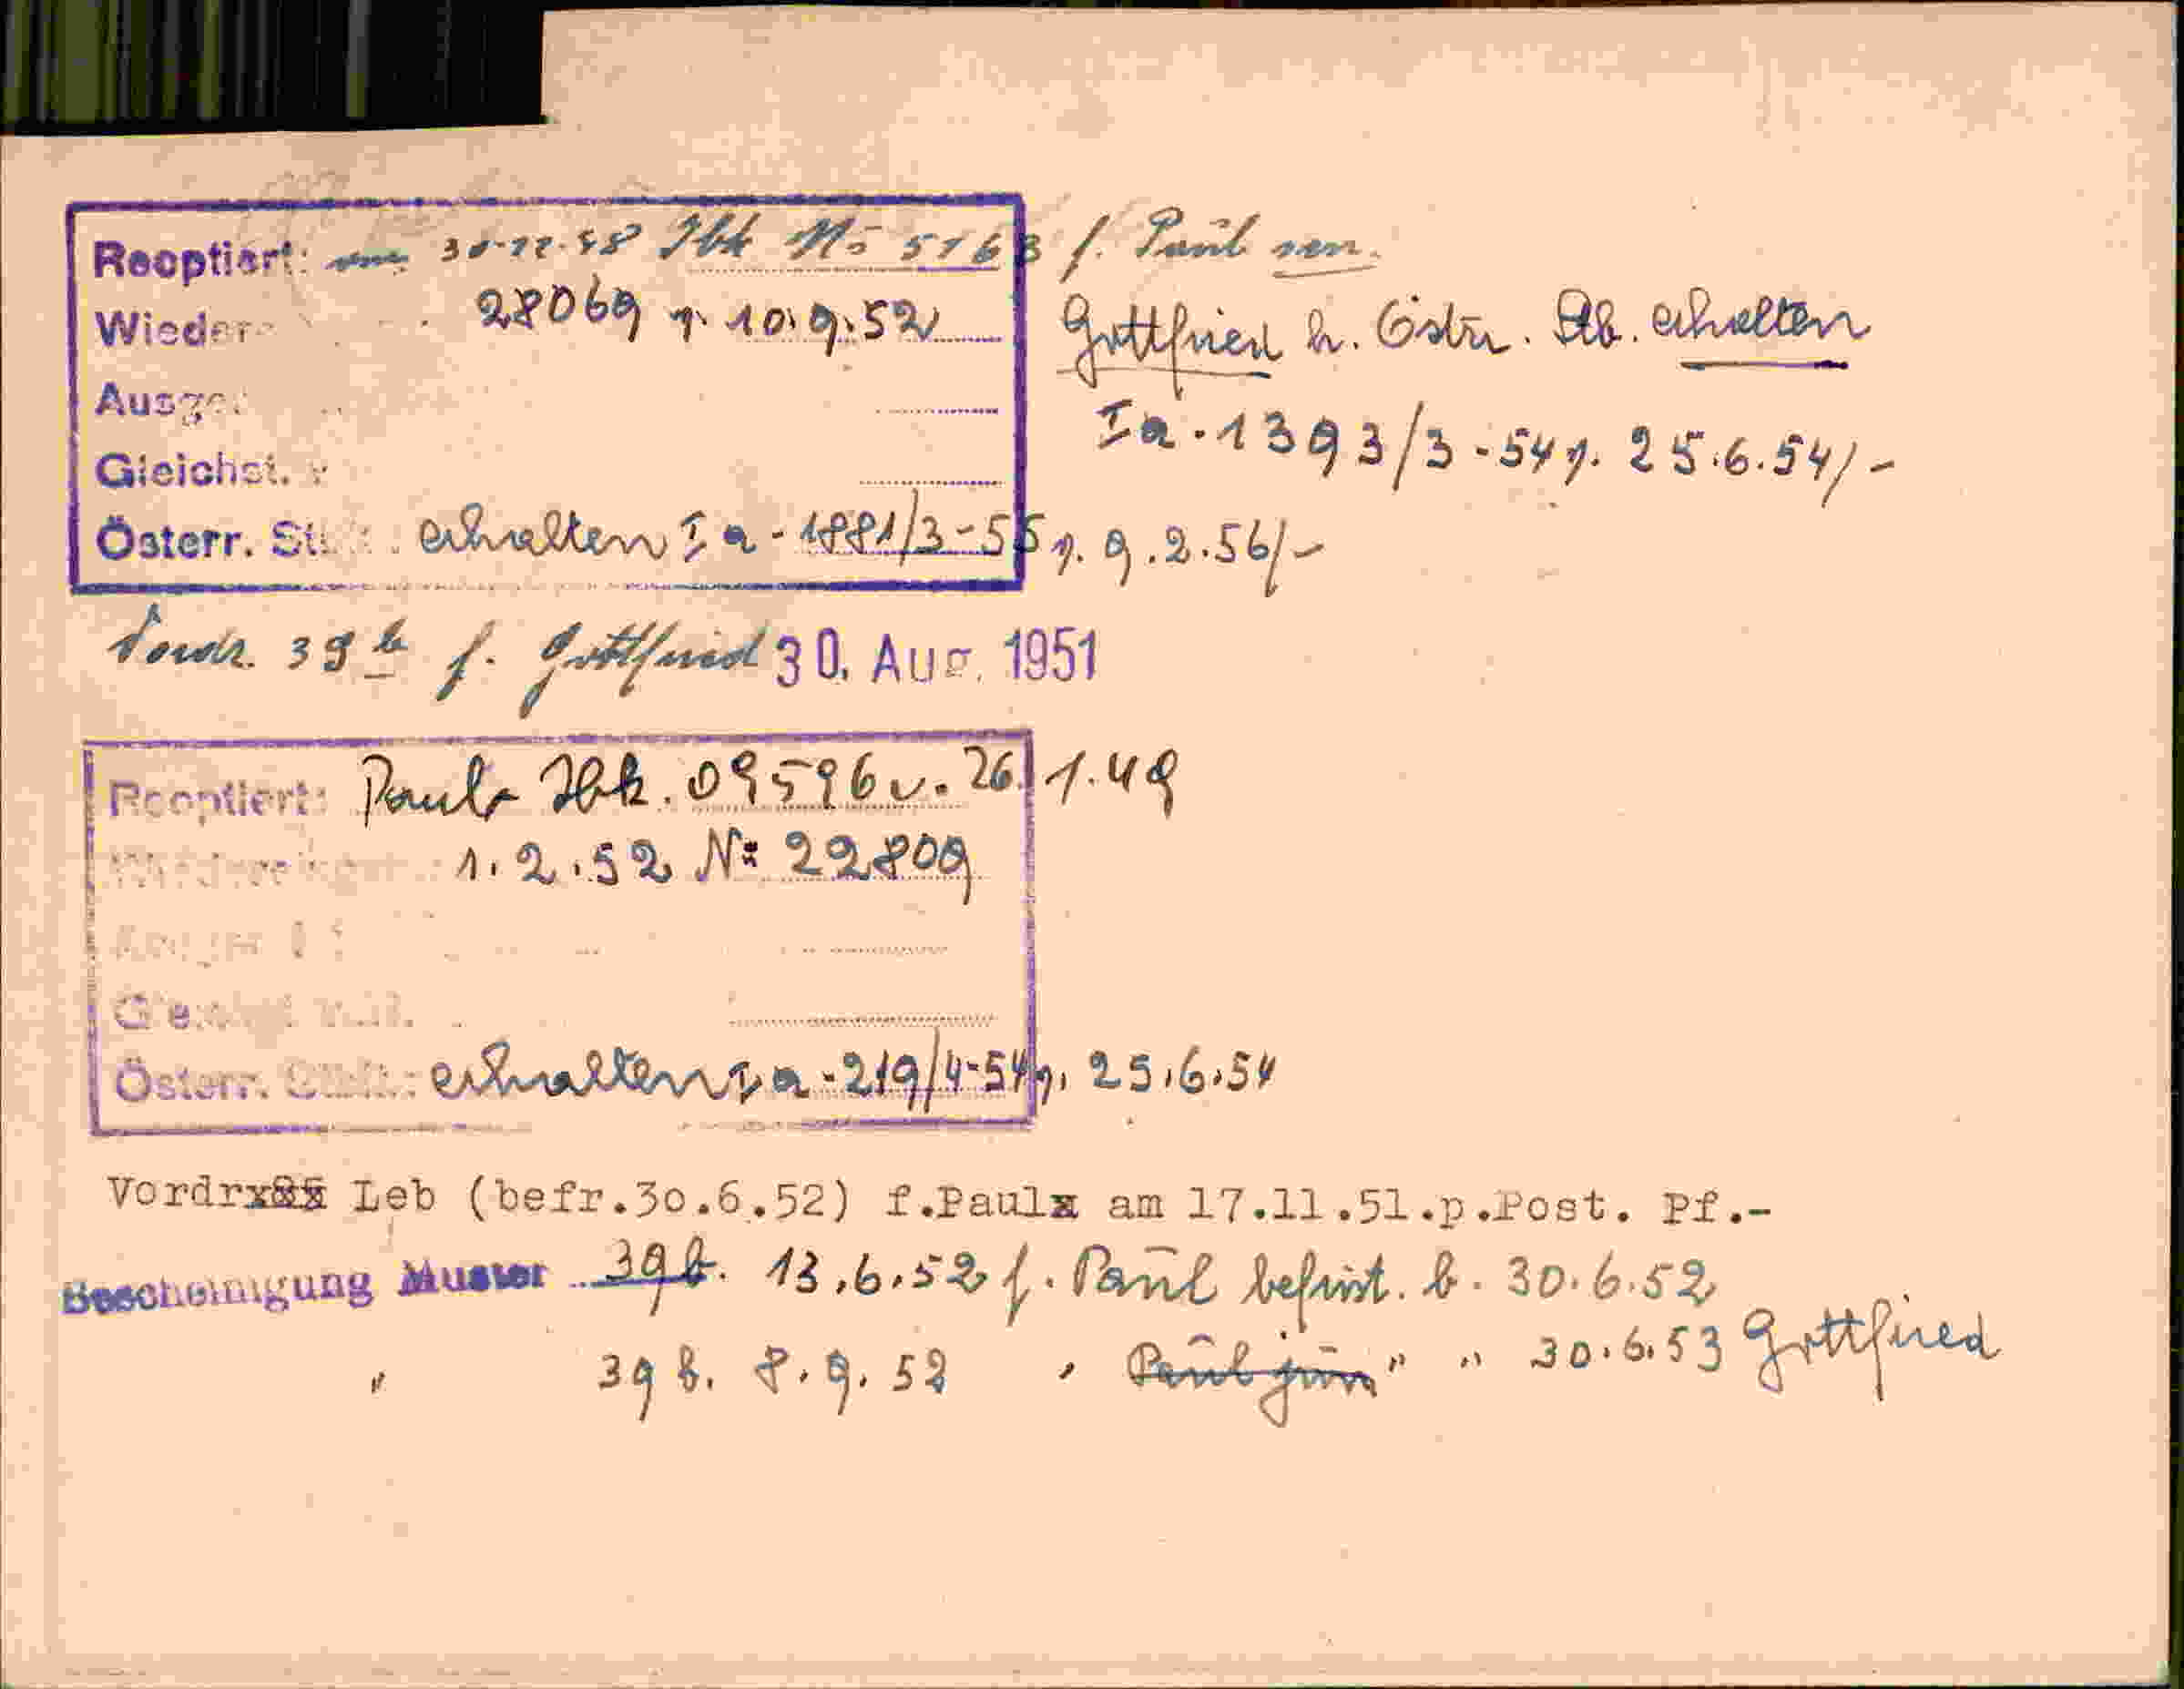 Reoptiert: 30.11.48 Ibk No 5163 f. Paul sen.
Wieder 28069 v. 10.9.52 Gottfried h. Östr. Stb. erhalten
Ausge. Ia-1393/3-54 v. 25.6.54/-
Gleichst.
Österr. St. erhalten Ia-1881/3-55 v. 9.2.56/-
39 b f. Gottfried 30. Aug. 1951
Reoptiert: Paul Ibk. 09596 v. 26.1.49
1.2.52 No 22809
Österr. erhalten Ia-219/4-54 v. 25.6.54
Vordr Leb (befr.30.6.52) f.Paul am 17.11.51.p.Post. Pf.-
Bescheinigung Muster 39b. 13.6.52 f. Paul befrist. b. 30.6.52
" 39 b. 8.9.52 , Paul jun " " 30.6.53 Gottfried